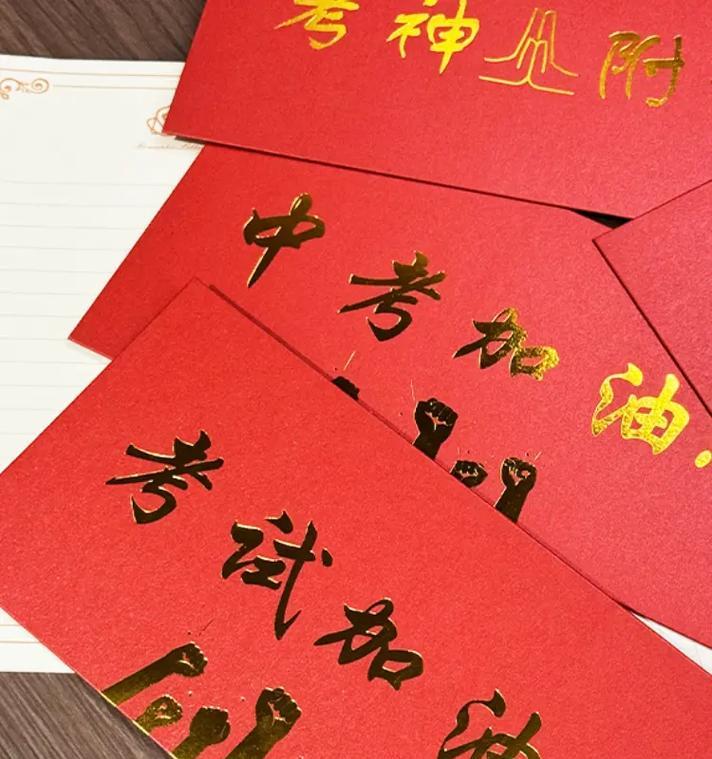 考神附
中考加油
考试加油